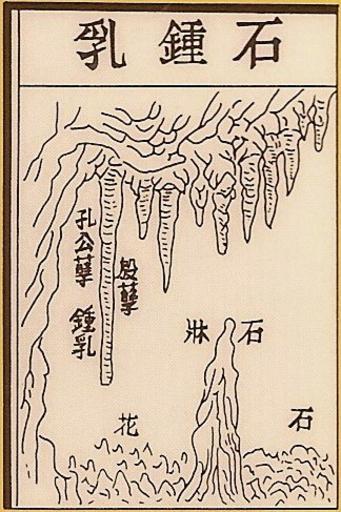 石鍾乳
殷孽
孔公孽
鍾乳
石牀
石花